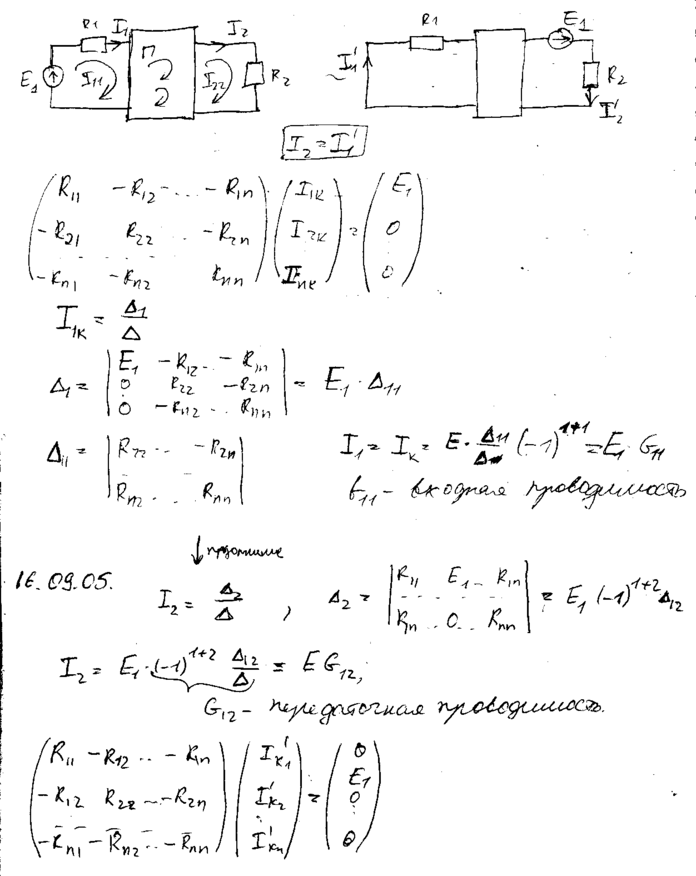 R1 I1 П I2 E1 I11 I22 R2
R1 E1 I1' R2 I2'
I2 = I1'
( R11 -R12 ... -R1n ) ( I1k ) ( E1 )
( -R21 R22 .. -R2n ) ( I2k ) = ( 0 )
( -Rn1 -Rn2 Rnn ) ( Ink ) ( 0 )
I1k = Δ1/Δ
Δ1 = | E1 -R12 .. -R1n ; 0 R22 -R2n ; 0 -Rn2 .. Rnn | = E1 · Δ11
Δ11 = | R22 .. -R2n ; Rn2 .. Rnn |
I1 = Ik = E · Δ11/Δ (-1)^1+1 = E1 · G11
G11 - входная проводимость
↓
16.09.05.
I2 = Δ2/Δ , Δ2 = | R11 E1 .. R1n ; R1n .. 0 .. Rnn | = E1 (-1)^1+2 Δ12
I2 = E1 · (-1)^1+2 Δ12/Δ = E G12,
G12 - передаточная проводимость.
( R11 -R12 .. -R1n ) ( Ik1' ) ( 0 E1 )
( -R12 R22 .. -R2n ) ( Ik2' ) = ( 0 )
( -Rn1 -Rn2 .. -Rnn ) ( Ikn' ) ( 0 )